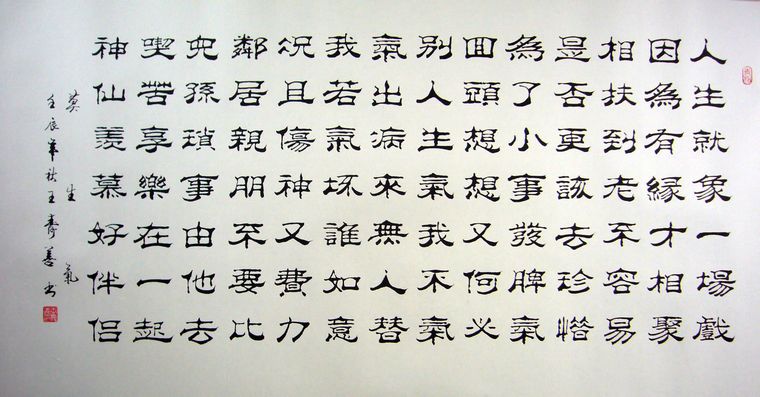 人生就象一場戲
因為有緣才相聚
相扶到老不容易
是否更該去珍惜
為了小事發脾氣
回頭想想又何必
別人生氣我不氣
氣出病來無人替
我若氣壞誰如意
況且傷神又費力
鄰居親朋不要比
兒孫瑣事由他去
喫苦享樂在一起
神仙羨慕好伴侶
莫生氣
壬辰年秋王壽善书